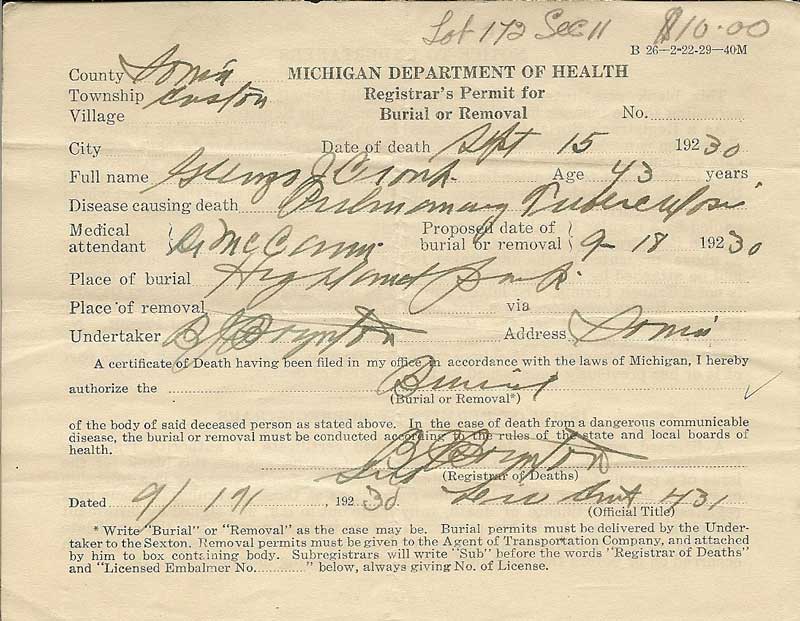 Lot 172 Sec 11 $10.00
B 26—2-22-29—40M
County Ionia MICHIGAN DEPARTMENT OF HEALTH
Township Easton Registrar's Permit for
Village Burial or Removal No.
City Date of death Sept 15 1930
Full name J Age 43 years
Disease causing death Pulmonary Tuberculosis
Medical attendant Dr McCann Proposed date of burial or removal 9-18 1930
Place of burial Highland Park
Place of removal via
Undertaker B J Boynton Address Ionia
A certificate of Death having been filed in my office in accordance with the laws of Michigan, I hereby
authorize the Burial
(Burial or Removal*)
of the body of said deceased person as stated above. In the case of death from a dangerous communicable
disease, the burial or removal must be conducted according to the rules of the state and local boards of
health.
Sub B J Boynton
(Registrar of Deaths)
Dated 9/17/, 1930 431
(Official Title)
* Write "Burial" or "Removal" as the case may be. Burial permits must be delivered by the Under-
taker to the Sexton. Removal permits must be given to the Agent of Transportation Company, and attached
by him to box containing body. Subregistrars will write "Sub" before the words "Registrar of Deaths"
and "Licensed Embalmer No..........." below, always giving No. of License.